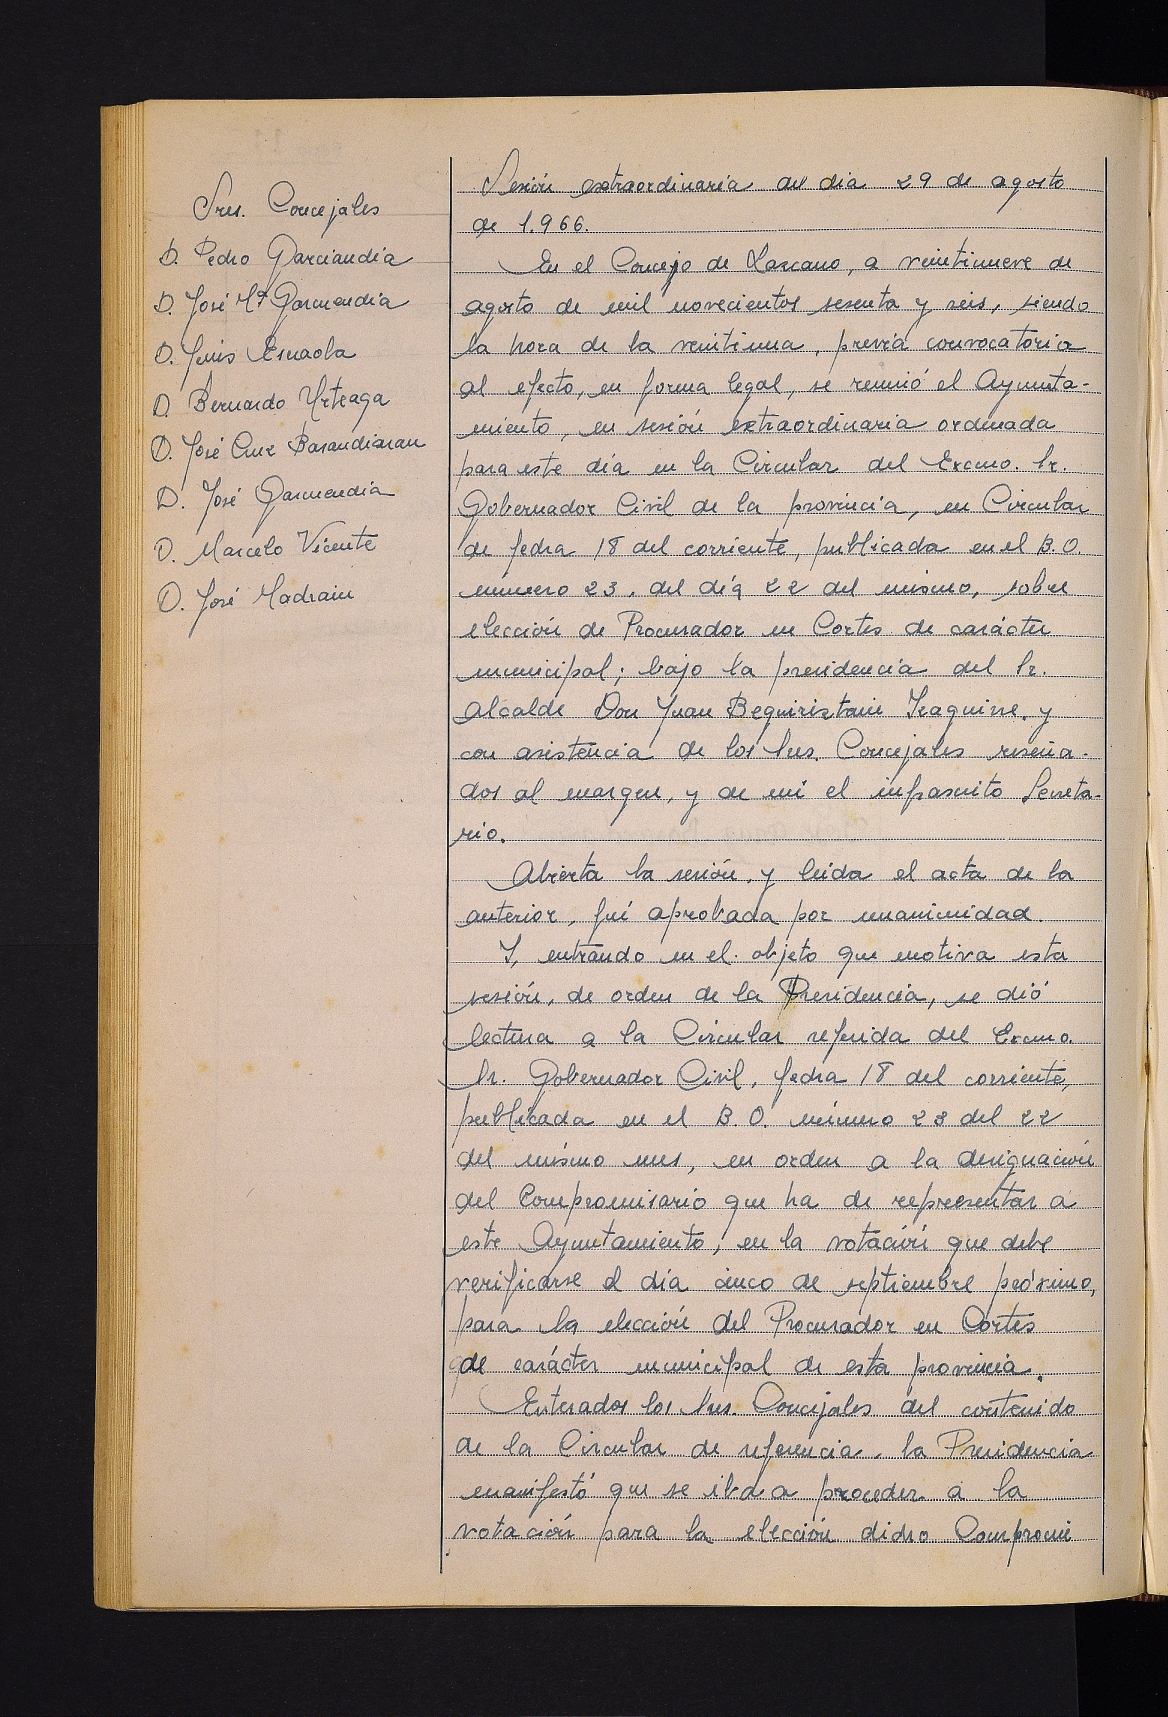 Sres. Concejales
D. Pedro Garciandia
D. José Mª Garmendia
D. Luis Esnaola
D. Bernardo Urteaga
D. José Cruz Barandiaran
D. José Garmendia
D. Marcelo Vicente
D. José Madrain
Sesión extraordinaria del dia 29 de agosto
de 1.966.
En el Concejo de Lazcano, a veintinueve de
agosto de mil novecientos sesenta y seis, siendo
la hora de la veintiuna, previa convocatoria
al efecto, en forma legal, se reunió el Ayunta-
miento, en sesión extraordinaria ordenada
para este día en la Circular del Excmo. Sr.
Gobernador Civil de la provincia, en Circular
de fecha 18 del corriente, publicada en el B.O.
número 23, del día 22 del mismo, sobre
elección de Procurador en Cortes de carácter
municipal; bajo la presidencia del Sr.
Alcalde Don Juan Beguiristain Izaguirre, y
con asistencia de los Sres. Concejales reseña-
dos al margen, y de mi el infrascrito Secreta-
rio.
Abierta la sesión, y leida el acta de la
anterior, fué aprobada por unanimidad.
Y, entrando en el objeto que motiva esta
sesión, de orden de la Presidencia, se dió
lectura a la Circular referida del Excmo.
Sr. Gobernador Civil, fecha 18 del corriente,
publicada en el B.O. número 23 del 22
del mismo mes, en orden a la designación
del Compromisario que ha de representar a
este Ayuntamiento, en la votación que debe
verificarse el día cinco de septiembre próximo,
para la elección del Procurador en Cortes
de carácter municipal de esta provincia.
Enterados los Sres. Concejales del contenido
de la Circular de referencia, la Presidencia
manifestó que se iba a proceder a la
votación para la elección dicho Compromi